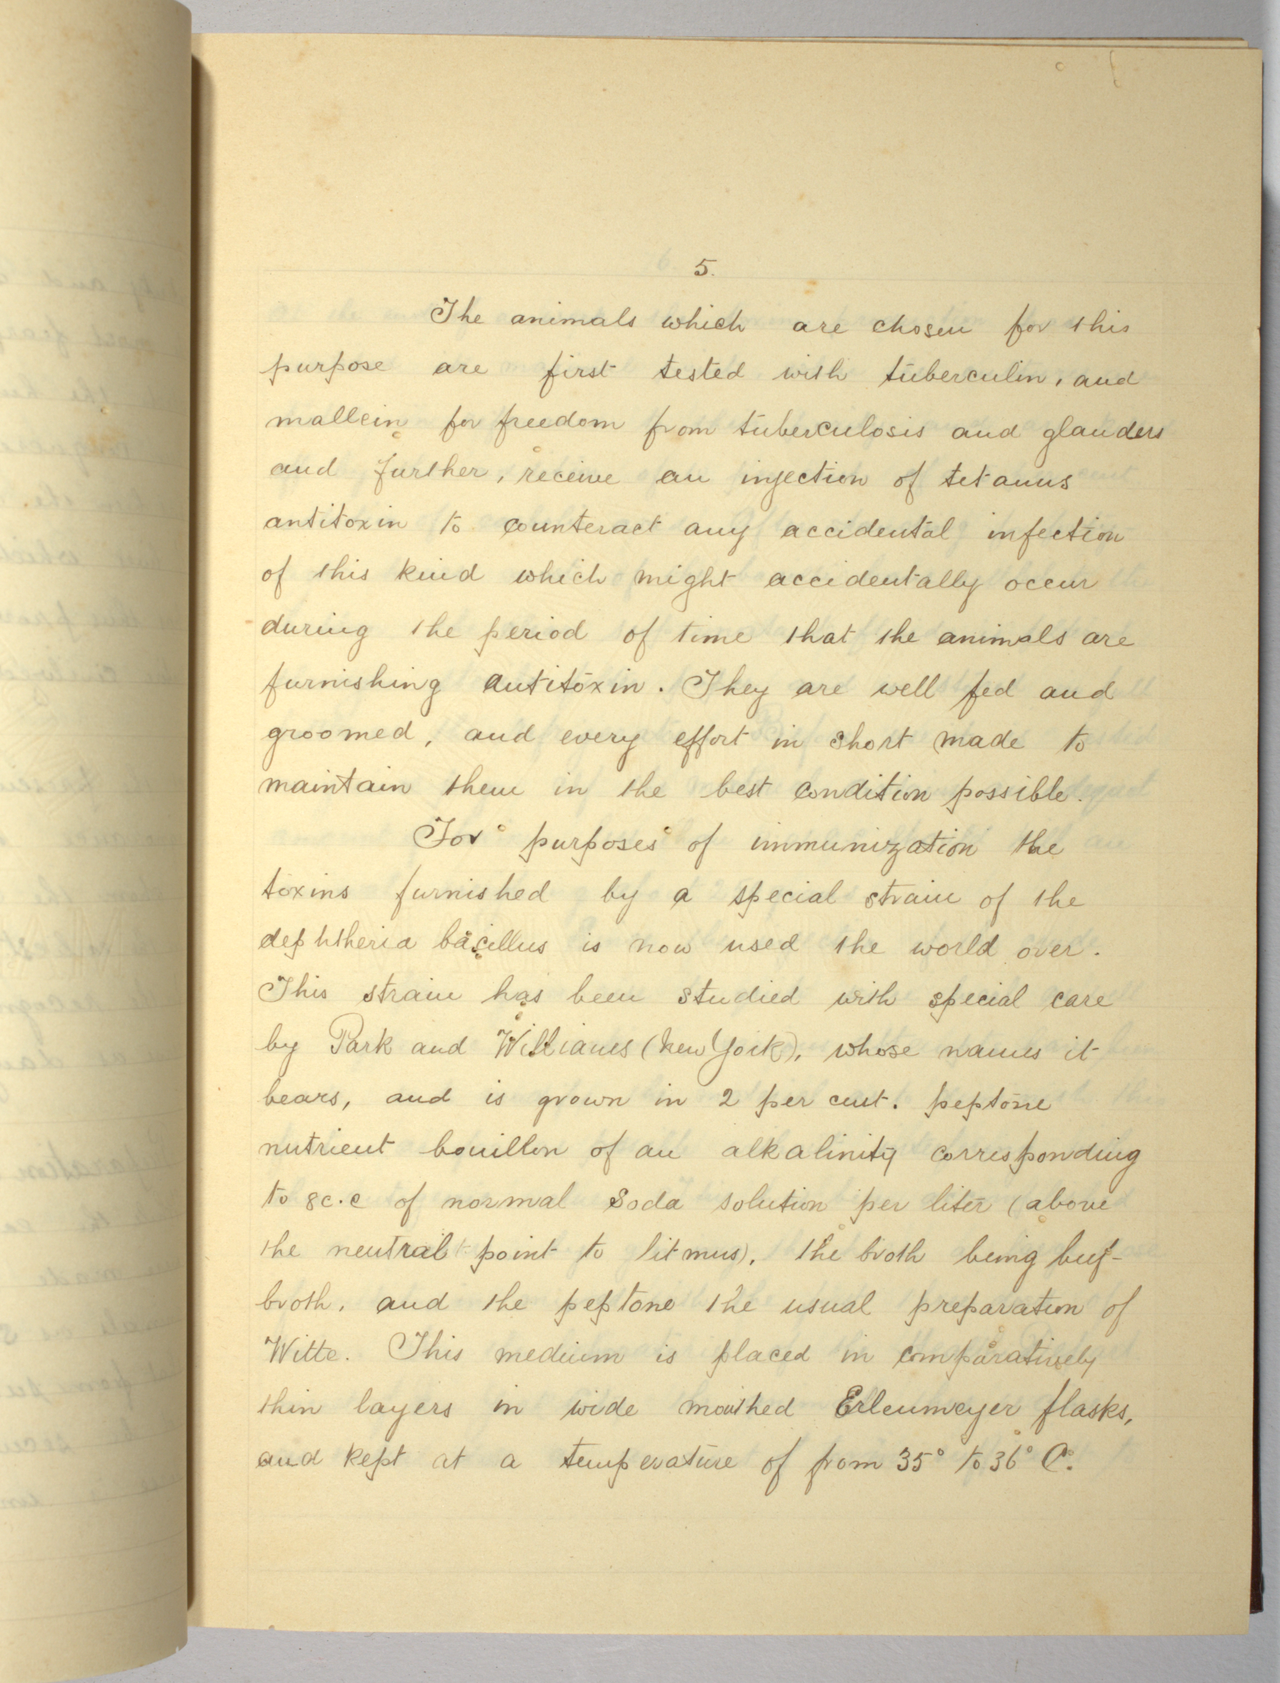 5.
The animals which are chosen for this
purpose are first tested with tuberculin, and
mallein for freedom from tuberculosis and glanders
and further, receive an injection of tetanus
antitoxin to counteract any accidental infection
of this kind which might accidentally occur
during the period of time that the animals are
furnishing antitoxin. They are well fed and
groomed, and every effort in short made to
maintain them in the best condition possible.
For purposes of immunization the
toxins furnished by a special strain of the
dephtheria bacillus is now used the world over.
This strain has been studied with special care
by Park and Williams (New York), whose names it
bears, and is grown in 2 per cent. peptone
nutrient bouillon of an alkalinity corresponding
to 8c.c of normal Soda solution per liter (above
the neutral point to litmus), the broth being beef-
broth, and the peptone the usual preparation of
Witte. This medium is placed in comparatively
thin layers in wide mouthed Erlenmeyer flasks,
and kept at a temperature of from 35° to 36° C.